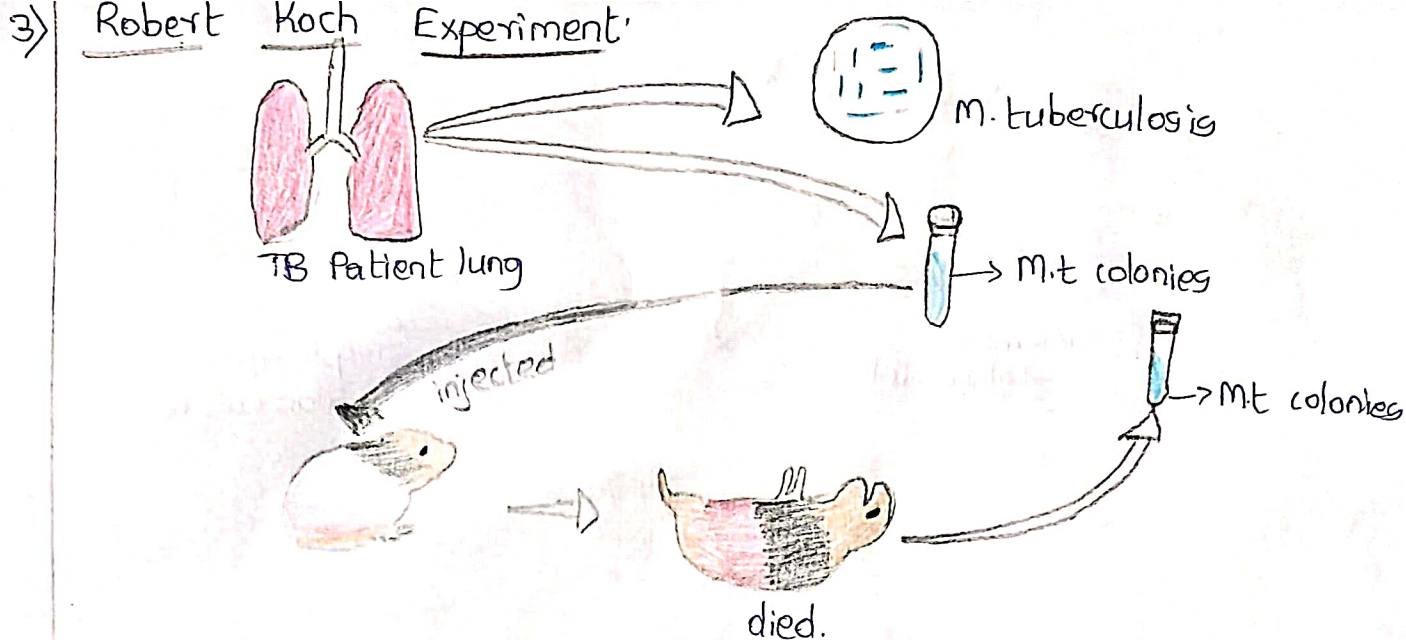 3) Robert Koch Experiment
M. tuberculosis
TB Patient lung
M.t colonies
injected
M.t colonies
died.